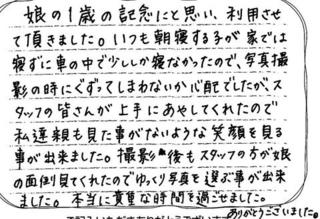 娘の1歳の記念にと思い、利用させ
て頂きました。いつも朝寝する子が家では
寝ずに車の中で少ししか寝なかったので、写真撮
影の時にぐずってしまわないか心配でしたが、ス
タッフの皆さんが上手にあやしてくれたので
私達親も見た事がないような笑顔を見る
事が出来ました。撮影後もスタッフの方が娘
の面倒見てくれたのでゆっくり写真を選ぶ事が出来
ました。本当に貴重な時間を過ごせました。
ありがとうございました。